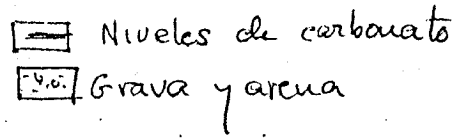 Niveles de carbonato
Grava y arena